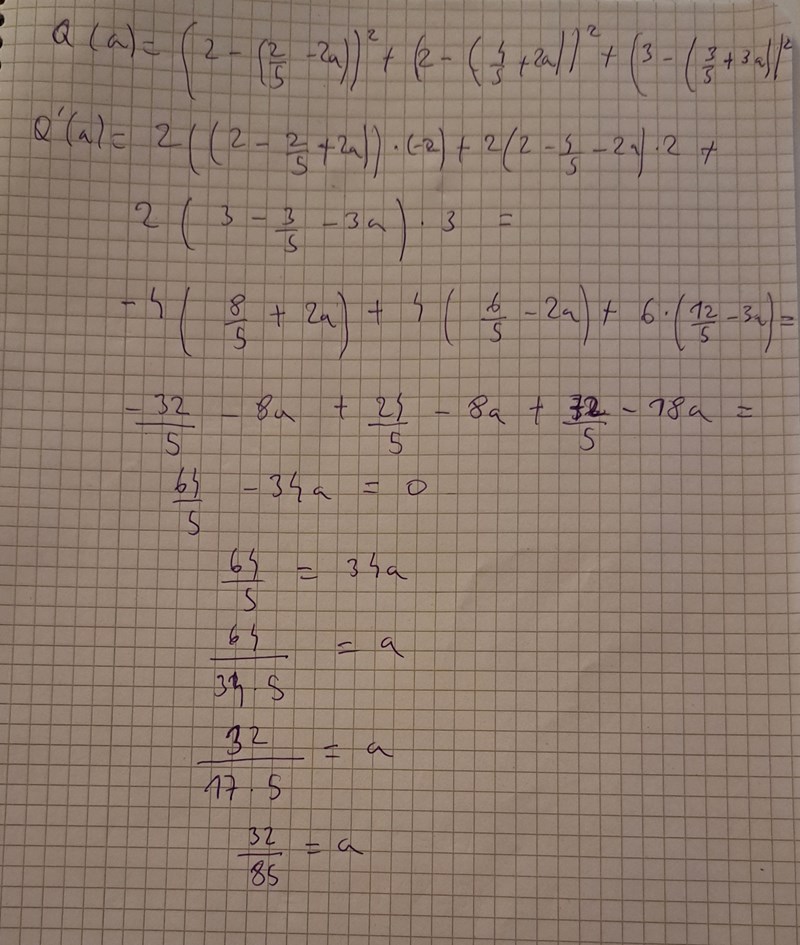 Q(a) = (2 - (2/5 - 2a))² + (2 - (4/5 + 2a))² + (3 - (3/5 + 3a))²
Q'(a) = 2((2 - 2/5 + 2a)) · (-2) + 2(2 - 4/5 - 2a) · 2 +
2(3 - 3/5 - 3a) · 3 =
-4(8/5 + 2a) + 4(6/5 - 2a) + 6 · (12/5 - 3a) =
-32/5 - 8a + 24/5 - 8a + 72/5 - 18a =
64/5 - 34a = 0
64/5 = 34a
64/(34 · 5) = a
32/(17 · 5) = a
32/85 = a